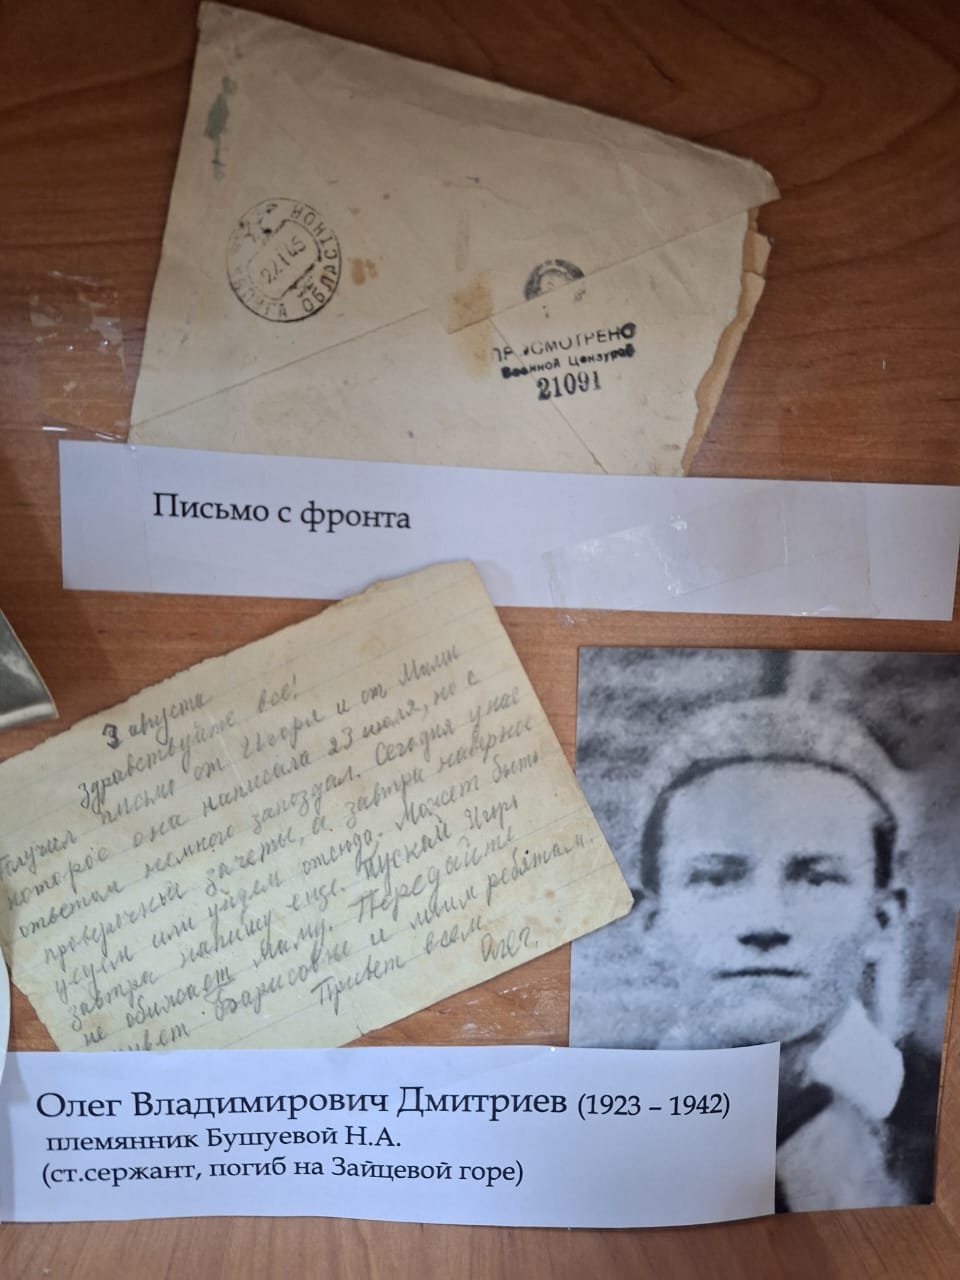 КАЛУГА ОБЛАСТНОЙ
22 1 45
ПРОСМОТРЕНО
Военной Цензурой
21091
Письмо с фронта
3 августа
Здравствуйте все!
Получил письмо от Игоря и от Мили
которое она написала 23 июля, но с
ответом немного запоздал. Сегодня у нас
проверочные зачеты, а завтра наверное
уедем или уйдем отсюда. Может быть
завтра напишу еще. Пускай Игорь
не обижает маму. Передайте
привет Барисовне и моим ребятам.
Привет всем
Олег.
Олег Владимирович Дмитриев (1923 – 1942)
племянник Бушуевой Н.А.
(ст.сержант, погиб на Зайцевой горе)